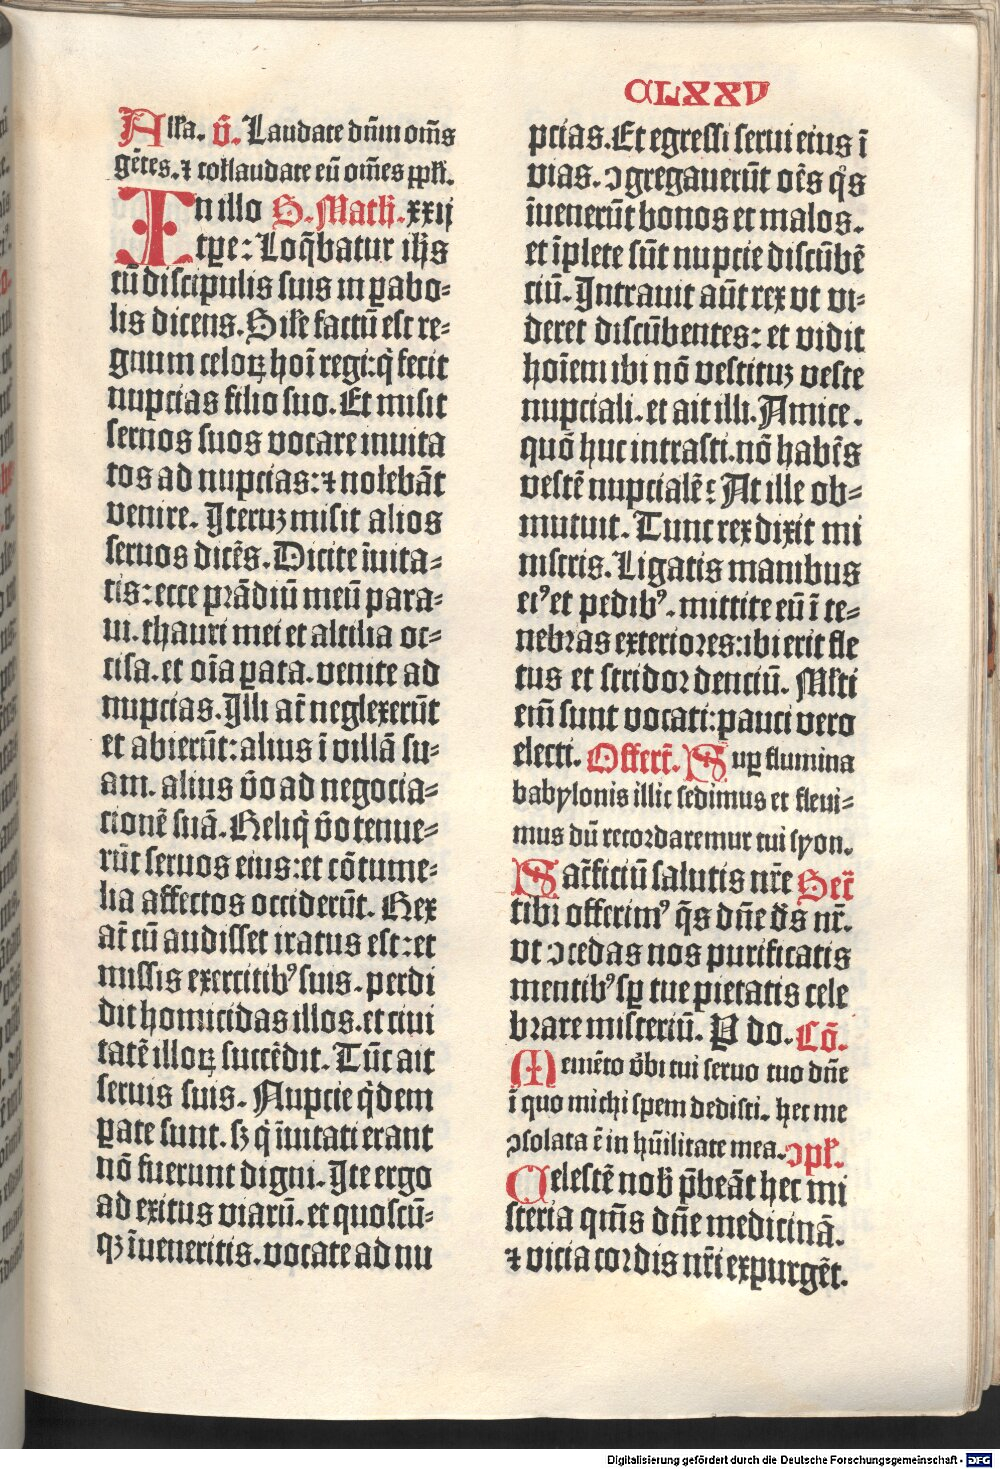 CLXXV
Alĺa. v̄. Laudate dn̄m om̄s
gētes. ⁊ collaudate eū om̄es ppĺi.
In illo S. Math. xxij
tꝑe: Loq̄batur ih̄s
cū discipulis suis in ꝑabo-
lis dicens. Siĺe factū est re-
gnum celoꝝ hoī regi: q̇ fecit
nupcias filio suo. Et misit
seruos suos vocare inuita
tos ad nupcias: ⁊ nolebāt
venire. Iteruꝫ misit alios
seruos dicēs. Dicite īuita-
tis: ecce prādiū meū para-
ui. thauri mei et altilia oc-
cisa. et oīa ꝑata. venite ad
nupcias. Illi at̄ neglexerūt
et abierūt: alius ī villā su-
am. alius v̄o ad negocia-
cionē suā. Reliq̇ v̄o tenue-
rūt seruos eius: et cōtume-
lia affectos occiderūt. Rex
at̄ cū audisset iratus est: et
missis exercitibꝰ suis. perdi
dit homicidas illos. et ciui
tatē illoꝝ succēdit. Tūc ait
seruis suis. Nupcie q̇dem
ꝑate sunt. sꝫ q̇ īuitati erant
nō fuerunt digni. Ite ergo
ad exitus viarū. et quoscū-
qꝫ īueneritis. vocate ad nu
pcias. Et egressi serui eius ī
vias. ↄgregauerūt oēs qͦs
īuenerūt bonos et malos.
et īplete sūt nupcie discūbē
ciū. Intrauit aūt rex vt vi-
deret discūbentes: et vidit
hoīem ibi nō vestituꝫ veste
nupciali. et ait illi. Amice.
quō huc intrasti. nō habēs
vestē nupcialē: At ille ob-
mutuit. Tunc rex dixit mi
nistris. Ligatis manibus
eiꝰ et pedibꝰ. mittite eū ī te-
nebras exteriores: ibi erit fle
tus et stridor denciū. Mĺti
em̄ sunt vocati: pauci vero
electi. Offert̄. Suꝑ flumina
babylonis illic sedimus et fleui-
mus dū recordaremur tui syon.
Sac̄ficiū salutis nr̄e Secr̄
tibi offerimꝰ q̄s dn̄e ds̄ nr̄.
vt ↄcedas nos purificatis
mentibꝰ sꝑ tue pietatis cele
brare misteriū. P do. Cō.
Memēto v̄bi tui seruo tuo dn̄e
ī quo michi spem dedisti. hec me
ↄsolata ē in hūilitate mea. ↄpĺ.
Celestē nob̄ p̄beāt hec mi
steria qm̄s dn̄e medicinā.
⁊ vicia cordis nr̄i expurgēt.
Digitalisierung gefördert durch die Deutsche Forschungsgemeinschaft - DFG